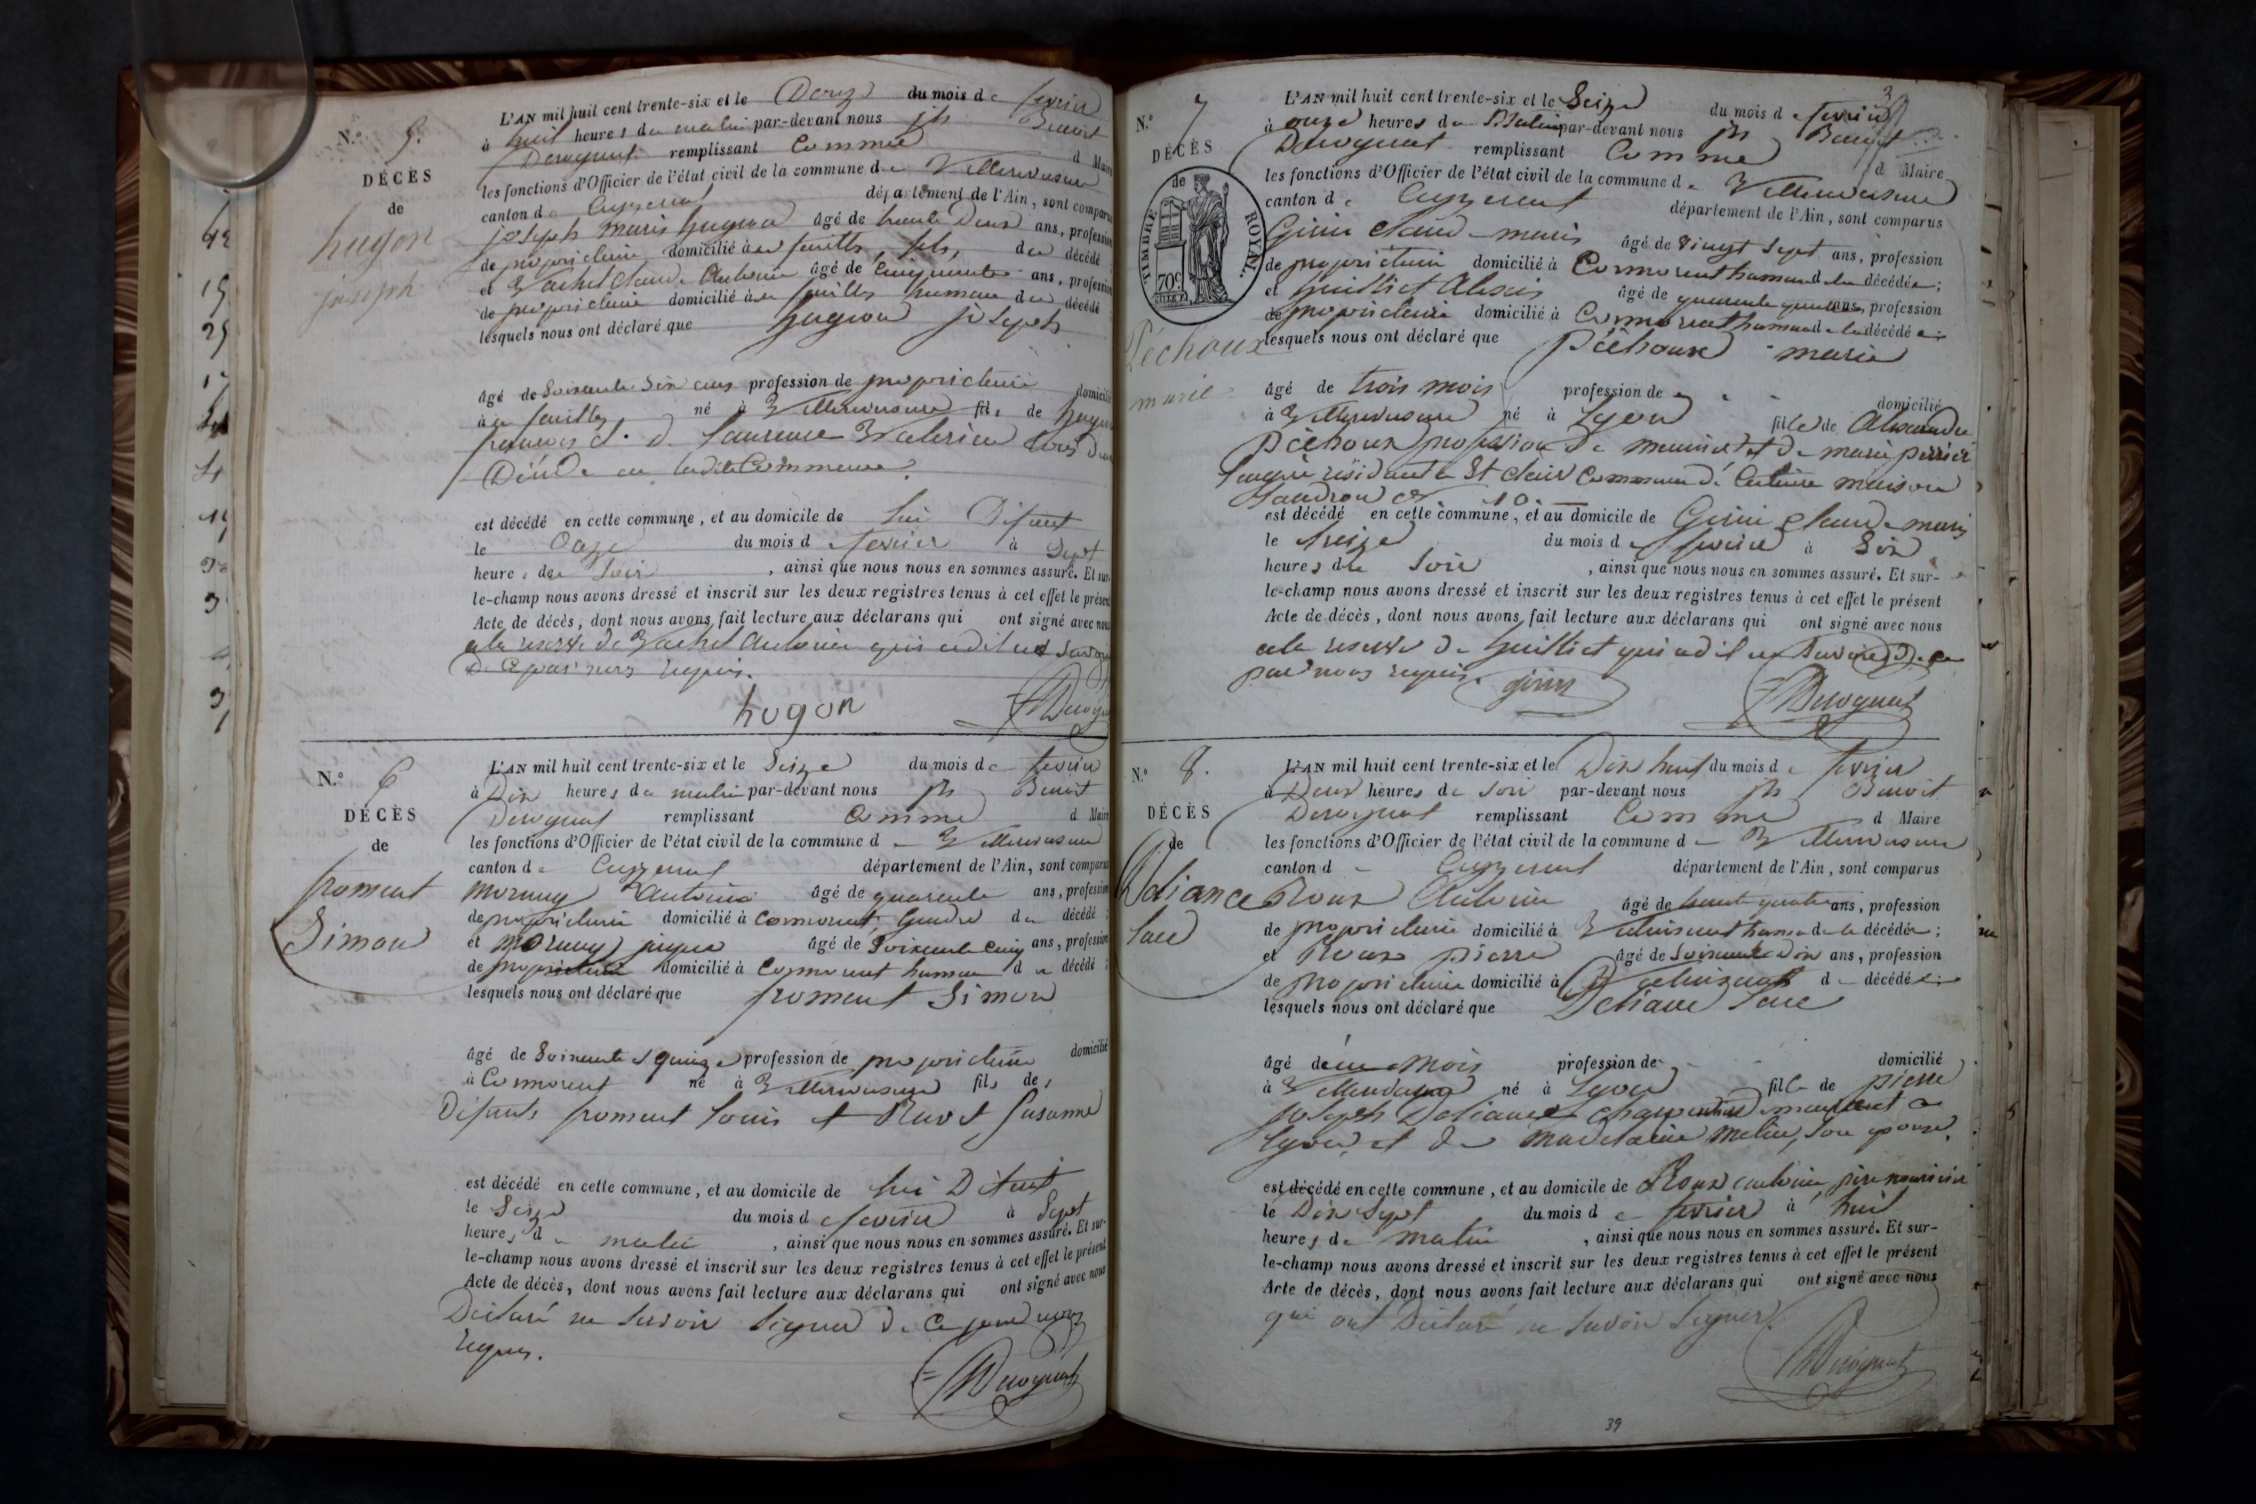 N.º 5.
DÉCÈS
de
hugon
joseph
L'AN mil huit cent trente-six et le Douze du mois de fevrier
à huit heures du matin par-devant nous jh Benoit
Deroguat remplissant Comme d Maire
les fonctions d'Officier de l'état civil de la commune de Villereversure
canton de Ceyzeriat département de l'Ain, sont comparus
joseph marie hugon âgé de trente Deux ans, profession
de proprietaire domicilié à fils, du décédé
et Vachet Claude Antoine âgé de Cinquante ans, profession
de proprietaire domicilié à du décédé
lesquels nous ont déclaré que hugon joseph
âgé de Soixante Six ans profession de proprietaire domicilié
à né à Villereversure fils de hugon
françois et de Laurence
en ladite Commune.
est décédé en cette commune, et au domicile de lui Défunt
le Onze du mois de fevrier à Sept
heures du Soir, ainsi que nous nous en sommes assuré. Et sur-
le-champ nous avons dressé et inscrit sur les deux registres tenus à cet effet le présent
Acte de décès, dont nous avons fait lecture aux déclarans qui ont signé avec nous
a la reserve de Vachet Antoine qui a dit ne Savoir
De ce par nous requis.
hugon Deroguat
N.º 6
DÉCÈS
de
froment
Simon
L'AN mil huit cent trente-six et le Seize du mois de fevrier
à Dix heures du matin par-devant nous jh Benoit
Deroguat remplissant Comme d Maire
les fonctions d'Officier de l'état civil de la commune de Villereversure
canton de Ceyzeriat département de l'Ain, sont comparus
morand Antoine âgé de quarente ans, profession
de proprietaire domicilié à Cormorent Gendre du décédé
et âgé de Soixante Cinq ans, profession
de proprietaire domicilié à Cormorent du décédé
lesquels nous ont déclaré que froment Simon
âgé de Soixante et quinze profession de proprietaire domicilié
à Cormorent né à Villereversure fils de
Défunts froment Louis et Ravet Susanne
est décédé en cette commune, et au domicile de lui Défunt
le Seize du mois de fevrier à Sept
heures du matin, ainsi que nous nous en sommes assuré. Et sur-
le-champ nous avons dressé et inscrit sur les deux registres tenus à cet effet le présent
Acte de décès, dont nous avons fait lecture aux déclarans qui ont signé avec nous
Déclaré ne Savoir Signer De Ce par nous
requis.
Deroguat
3
N.º 7
DÉCÈS
de
TIMBRE ROYAL.
70c
Péchoux
marie
L'AN mil huit cent trente-six et le Seize du mois de fevrier
à onze heures du Matin par-devant nous jh Benoit
Deroguat remplissant Comme d Maire
les fonctions d'Officier de l'état civil de la commune de Villereversure
canton de Ceyzeriat département de l'Ain, sont comparus
Girin Claude marie âgé de Vingt Sept ans, profession
de proprietaire domicilié à Cormorent de la décédée;
et Guilliet Alexis âgé de quarente ans, profession
de proprietaire domicilié à Cormorent de la décédée;
lesquels nous ont déclaré que Péchoux marie
âgé de trois mois profession de domicilié
à Villereversure né à Lyon fille de Alexandre
Péchoux profession De meunier et De marie perrier
résidant a St Clair Commune de Caluire maison
No. 10.
est décédé en cette commune, et au domicile de Girin Claude marie
le treize du mois de fevrier à Six
heures du Soir, ainsi que nous nous en sommes assuré. Et sur-
le-champ nous avons dressé et inscrit sur les deux registres tenus à cet effet le présent
Acte de décès, dont nous avons fait lecture aux déclarans qui ont signé avec nous
a la reserve De Guilliet qui a dit ne Savoir De ce
par nous requis. girin
Deroguat
N.º 8.
DÉCÈS
de
Deliance
L'AN mil huit cent trente-six et le Dix huit du mois de fevrier
à Deux heures du Soir par-devant nous jh Benoit
Deroguat remplissant Comme d Maire
les fonctions d'Officier de l'état civil de la commune de Villereversure
canton d Ceyzeriat département de l'Ain, sont comparus
Roux Antoine âgé de trente quatre ans, profession
de proprietaire domicilié à de la décédée;
et Roux pierre âgé de Soixante Dix ans, profession
de proprietaire domicilié à de décédée;
lesquels nous ont déclaré que Deliance
âgé de un mois profession de domicilié
à Villereversure né à Lyon fille de pierre
joseph Deliance Charpentier demeurant a
Lyon, et de madelaine melin, son epouse.
est décédé en cette commune, et au domicile de Roux antoine père nourricier
le Dix Sept du mois de fevrier à huit
heures du matin, ainsi que nous nous en sommes assuré. Et sur-
le-champ nous avons dressé et inscrit sur les deux registres tenus à cet effet le présent
Acte de décès, dont nous avons fait lecture aux déclarans qui ont signé avec nous
qui ont Déclaré ne Savoir Signer.
Deroguat
39